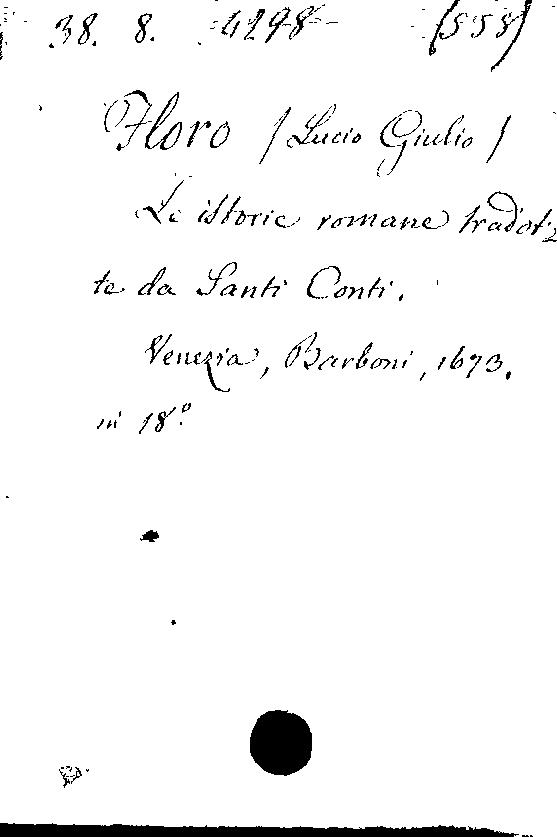 38. 8. 4298 (558)
Floro (Lucio Giulio)
Le istorie romane tradot=
te da Santi Conti.
Venezia, Barboni, 1673.
in 18º